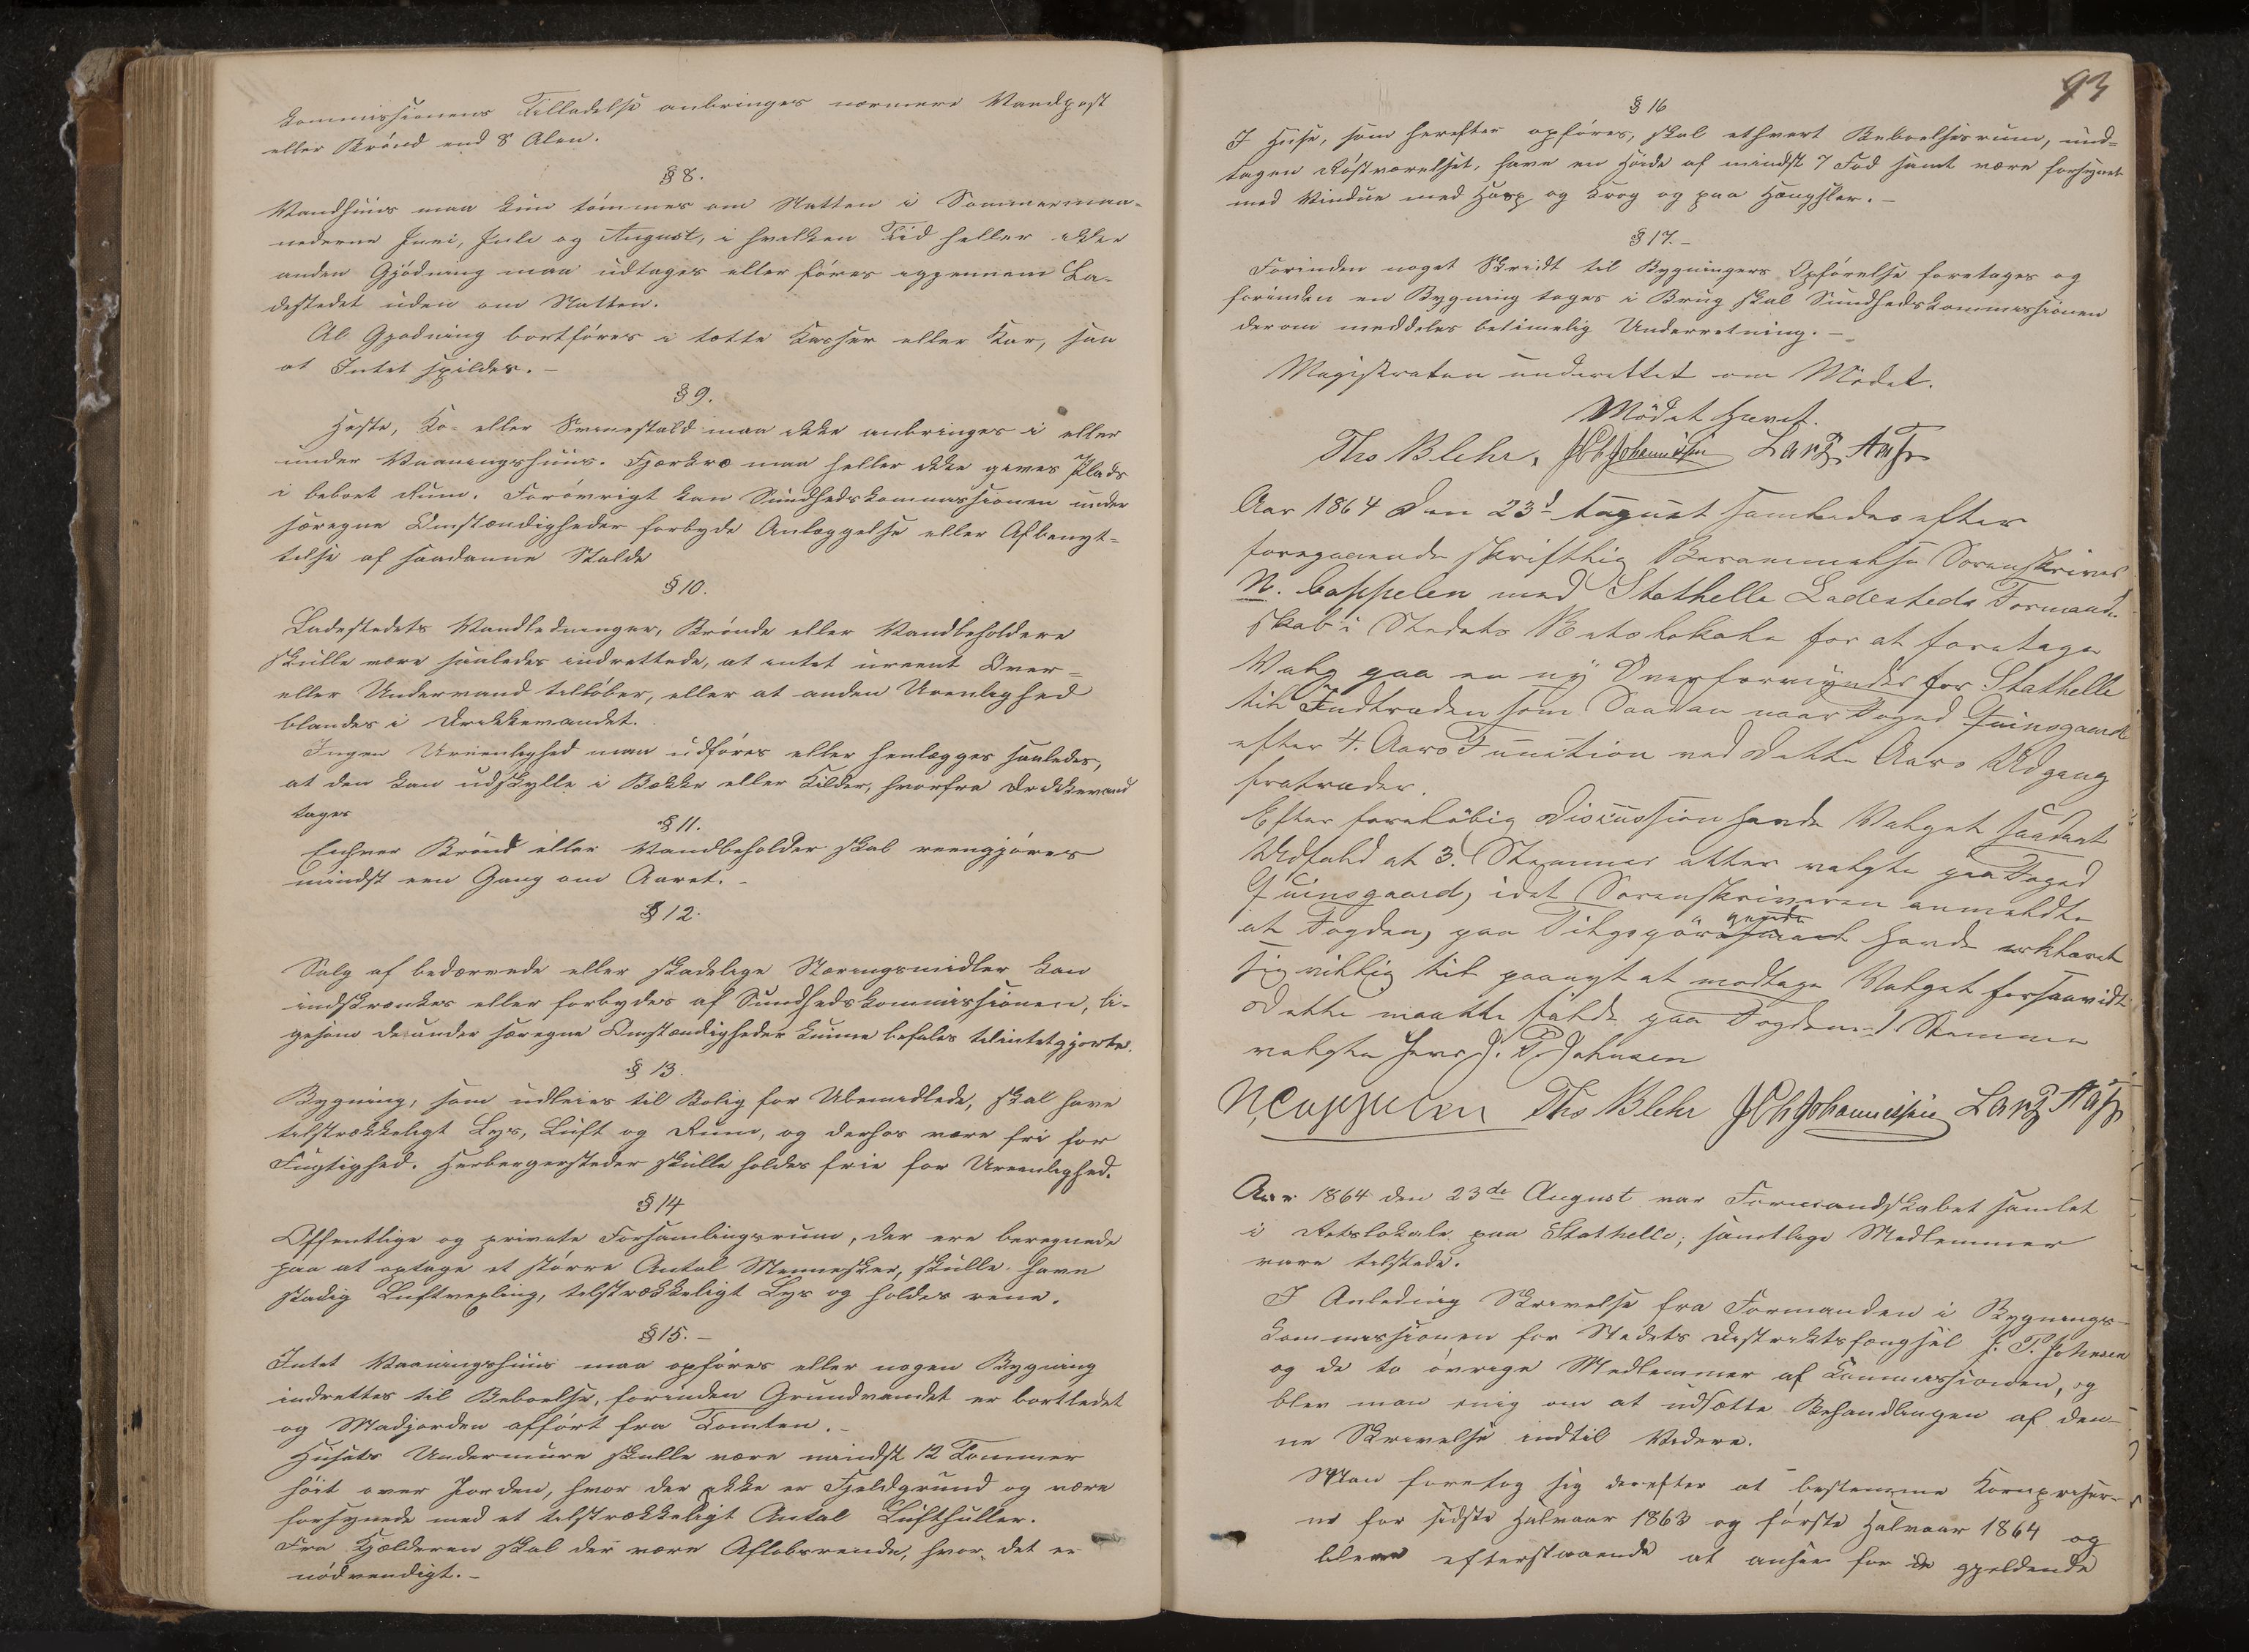 Kommissionens Tilladelse anbringes nærmere Vandpost
eller Brönd end 8 Alen.
§ 8.
Vandhuus maa kun tömmes om Natten i Sommermaa-
nederne Juni, Juli og August, i hvilken Tid heller ikke
anden Gjödning maa udtages eller föres igjennem La-
destedet uden om Natten.
Al Gjødning bortföres i tætte Kasser eller Kar, saa
at Intet spildes. –
§ 9.
Heste, Ko- eller Svinestald maa ikke anbringes i eller
under Vaaningshuus. Fjærkræ maa heller ikke gives Plads
i beboet Rum. Forövrigt kan Sundhedskommissionen under
særegne Omstændigheder forbyde Anlæggelse eller Afbenyt-
telse af saadanne Stalde
§ 10.
Ladestedets Vandledninger, Brönde eller Vandbeholdere
skulle være saaledes indrettede, at intet ureent Over-
eller Undervand tillöber, eller at anden Urenlighed
blandes i Drikkevandet.
Ingen Ureenlighed maa udföres eller henlægges saaledes,
at den kan udskylle i Bække eller Kilder, hvorfra Drikkevand
tages
§ 11.
Enhver Brönd eller Vandbeholder skal reengjöres
mindst een Gang om Aaret. –
§ 12.
Salg af bedærvede eller skadelige Næringsmidler kan
indskrænkes eller forbydes af Sundhedskommissionen, li-
gesom de under særegne Omstændigheder kunne befales tilintetgjorte.
§ 13.
Bygning, som udleies til Bolig for Ubemidlede, skal have
tilstrækkeligt Lys, Luft og Rum, og derhos være fri for
Fugtighed. Herbergersteder skulle holdes frie for Ureenlighed.
§ 14
Offentlige og private Forsamlingsrum, der ere beregnede
paa at optage et större Antal Mennesker, skulle have
stadig Luftvexling, tilstrækkeligt Lys og holdes rene.
§ 15. –
Intet Vaaningshuus maa opföres eller nogen Bygning
indrettes til Beboelse, forinden Grundvandet er bortledet
og Madjorden afført fra Tomten. –
Husets Undermure skulle være mindst 12 Tommer
höit over Jorden, hvor der ikke er Fjeldgrund og være
forsynede med et tilstrækkeligt Antal Lufthuller.
Fra Kjælderen skal der være Aflöbsrende, hvor det er
nödvendigt. –
93
§ 16
I Huse, som herefter opföres, skal ethvert Beboelsesrum, und-
tagen Röstværelset, have en Höide af mindst 7 Fod samt være forsynet
med Vindue med Hasp og Krog og paa Hængsler. –
§ 17. –
Forinden noget Skridt til Bygningers Opförelse foretages og
forinden en Bygning tages i Brug skal Sundhedskommissionen
derom meddeles betimelig Underretning. –
Magistraten underrettet om Mödet.
Mödet hævet.
Ths Blehr. J Ch Johannessen Lars Aas
Aar 1864 den 23d August samledes efter
foregaaende skriftlig Berammelse Sorenskriver
N. Cappelen med Stathelle Ladesteds Formand-
skab i Stedets Retslokale for at foretage
Valg paa en ny Overformynder for Stathelle
til Indtræden som Saadan naar Foged Quinsgaard
efter 4. Aars Function ved dette Aars Udgang
fratræder.
Efter foreløbig Discussion havde Valget saadant
Udfald at 3. Stemmer atter valgte paa Foged
Quinsgaard, idet Sorenskriveren anmeldte
at Fogden, paa Tilspörgende havde erklæret
sig villig til paanyt at modtage Valget forsaavidt
dette maatte falde paa Fogden – 1 Stemme
valgte Herr J. P. Johnsen
NCappelen Ths Blehr J Ch Johannessen Lars Aas
Aar 1864 den 23de August var Formandskabet samlet
i Retslokale paa Stathelle; samtlige Medlemmer
vare tilstede.
I Anledning Skrivelse fra Formanden i Bygnings-
kommissionen for Stedets Distriktsfængsel J. P. Johnsen
og de to övrige Medlemmer af Kommissionen, og
blev man enig om at udsætte Behandlingen af den-
ne Skrivelse indtil Videre.
Man foretog sig derefter at bestemme Kornpriser-
ne for sidste Halvaar 1863 og förste Halvaar 1864 og
bleve efterstaaende at ansee for de gjeldende